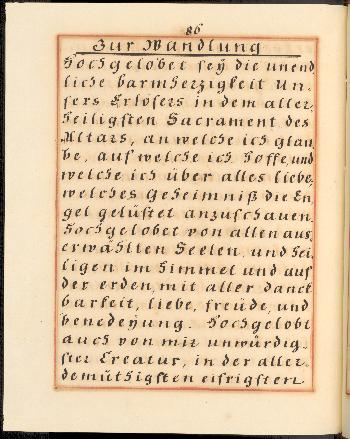 86
Zur Wandlung
Hochgelobet seÿ die unend,
liche barmherzigkeit Un,
sers Erlösers in dem aller,
heiligsten Sacrament des
Altars, an welche ich glau,
be, auf welche ich hoffe, und
welche ich über alles liebe,
welches Geheimniß die En,
gel gelüstet anzuschauen.
Hochgelobet von allen aus,
erwählten Seelen, und hei,
ligen im Himmel und auf
der erden, mit aller danck
barkeit, liebe, freüde, und
benedeÿung. Hochgelobt
auch von mir unwürdig,
ster Creatur, in der aller,
demüthigsten eifrigsten